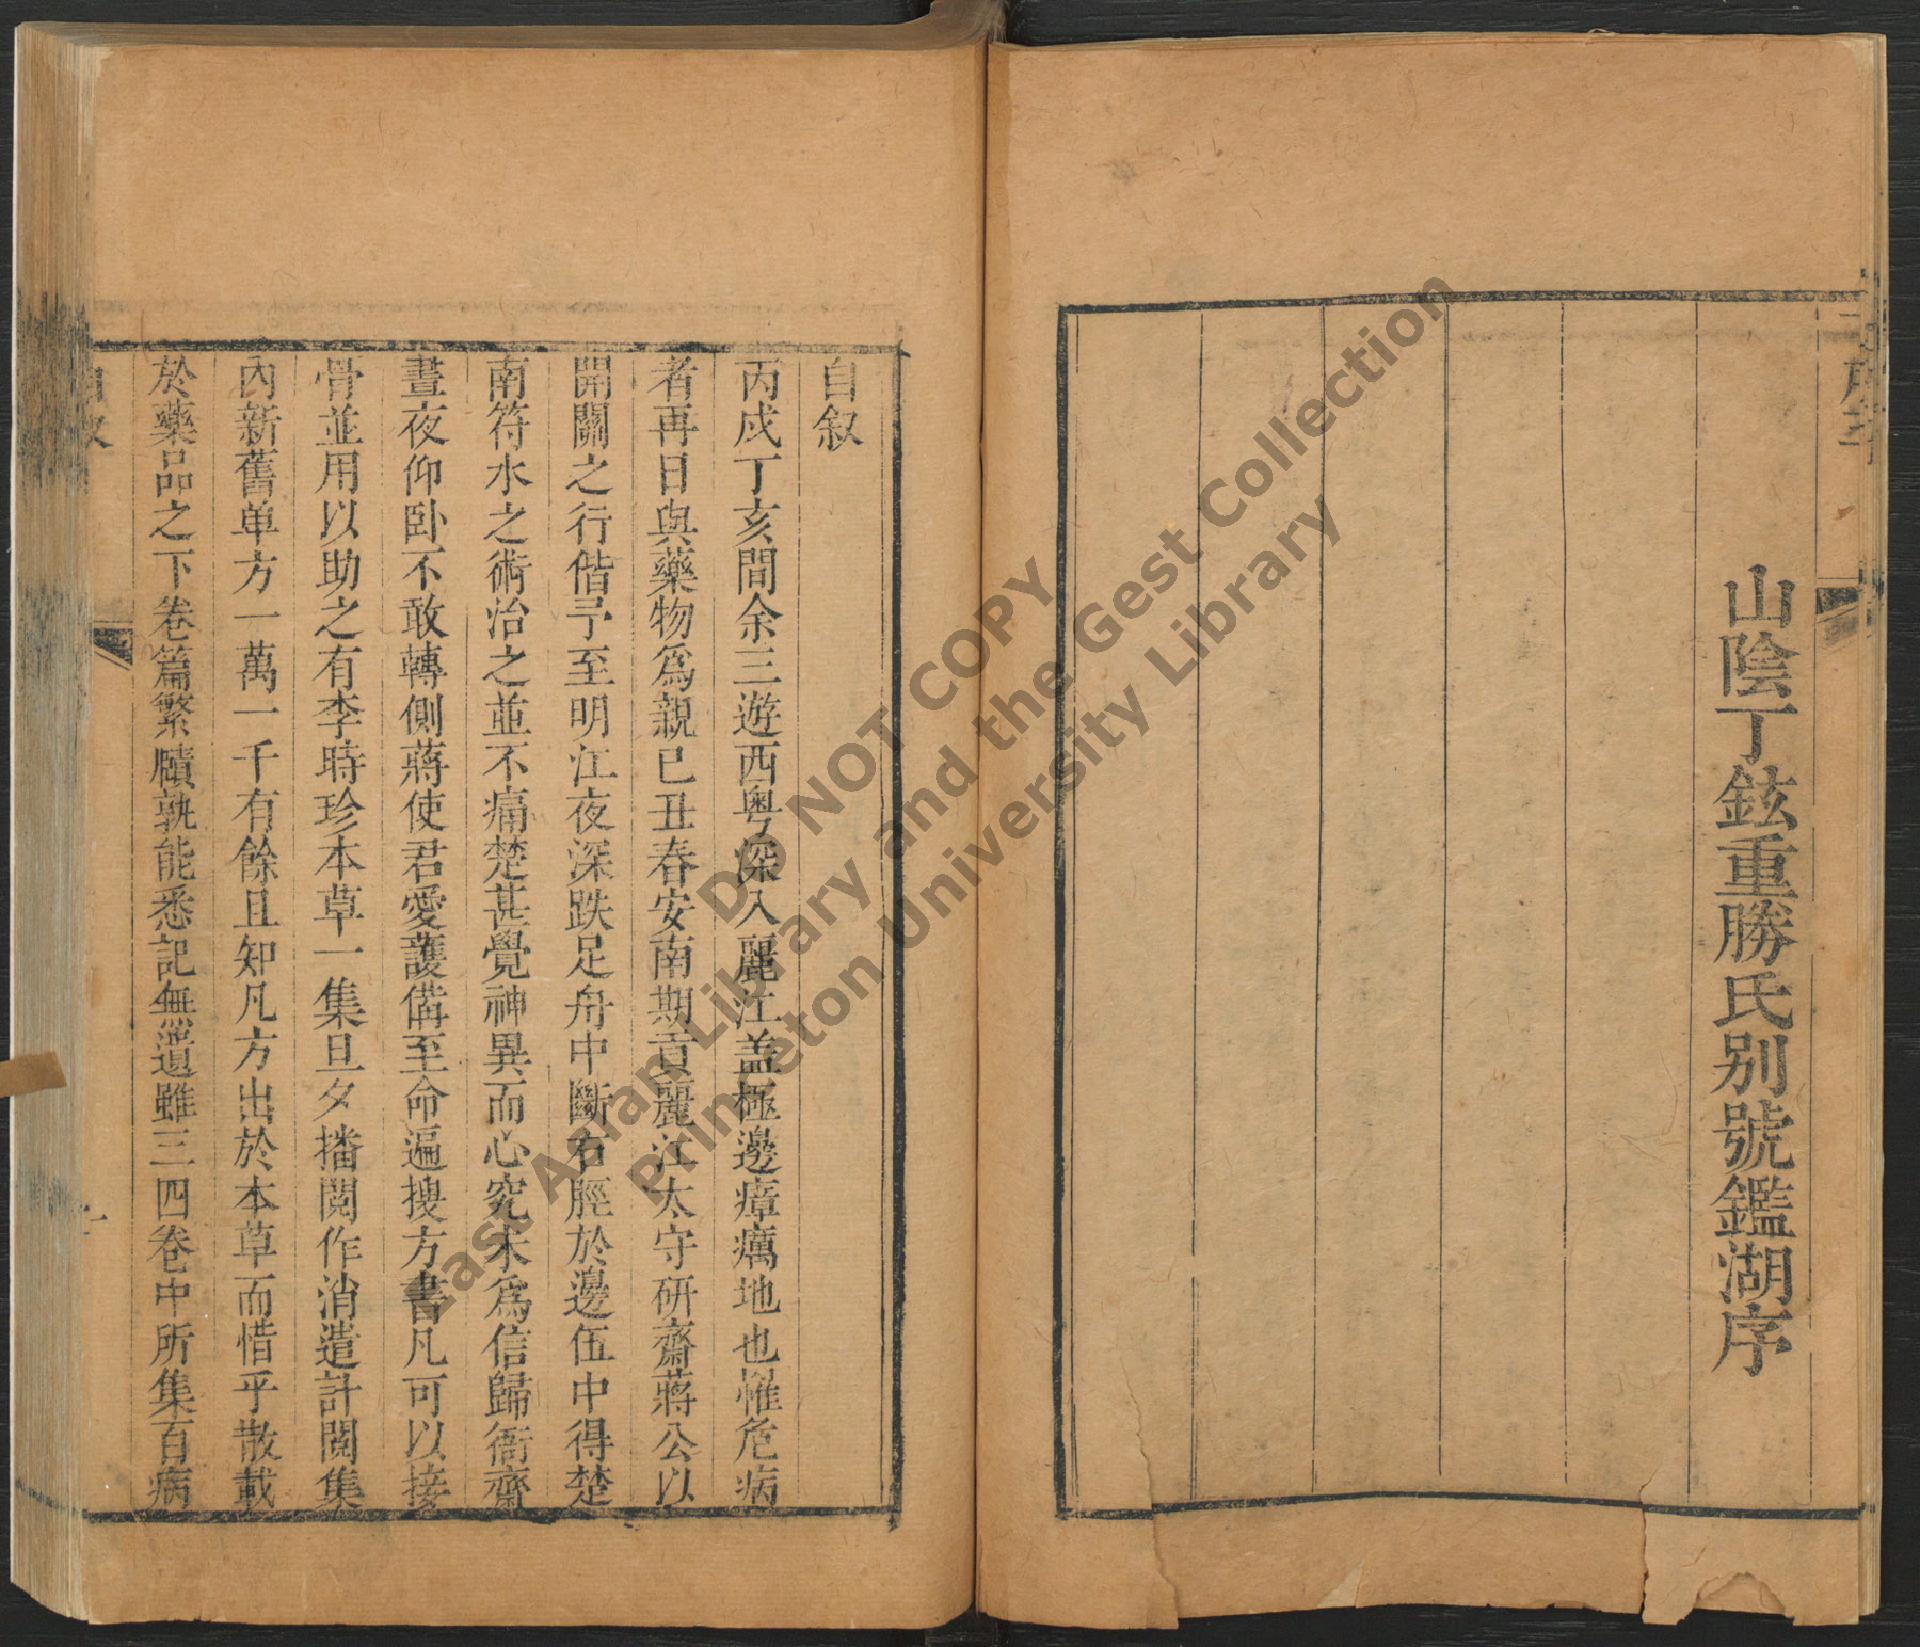 山陰丁鉉重勝氏別號鑑湖序
自敘
丙戌丁亥間余三遊西粵深入麗江盖極邊瘴癘地也罹危病
者再日與藥物爲親己丑春安南期貢麗江太守研齋蔣公以
開關之行偕予至明江夜深跌足舟中斷右脛於邊伍中得楚
南符水之術治之並不痛楚甚覺神異而心究未爲信歸衙齋
晝夜仰卧不敢轉側蔣使君愛護備至命遍搜方書凡可以接
骨並用以助之有李時珍本草一集旦夕播閱作消遣計閱集
內新舊单方一萬一千有餘且知凡方出於本草而惜乎散載
於藥品之下卷篇繁牘孰能悉記無遺雖三四卷中所集百病
自敘
一
DO NOT COPY
East Asian Library and the Gest Collection
Princeton University Library